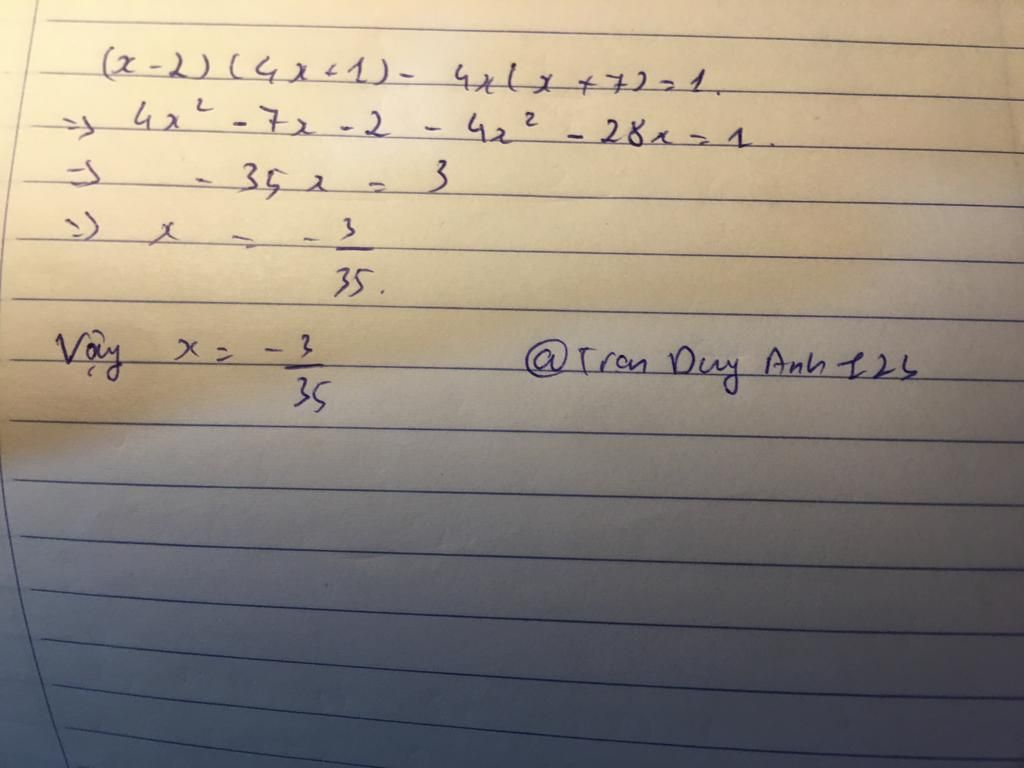 (x-2)(4x+1) - 4x(x+7)=1.
=> 4x² - 7x - 2 - 4x² - 28x = 1.
=> - 35x = 3
=> x = - 3/35.
Vậy x = - 3/35
@Tran Duy Anh 123